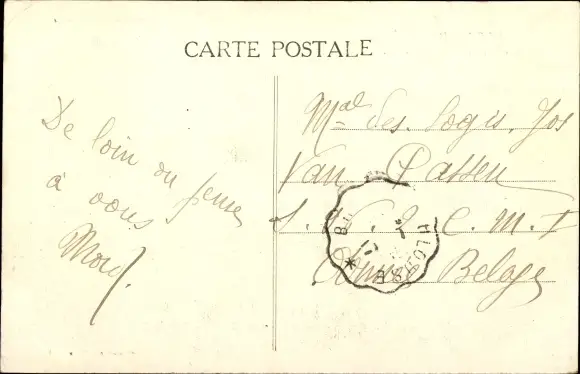 CARTE POSTALE
De loin on pense
à vous
Mal des Logis Jos
Van Passen
C. M. I
Armée Belge